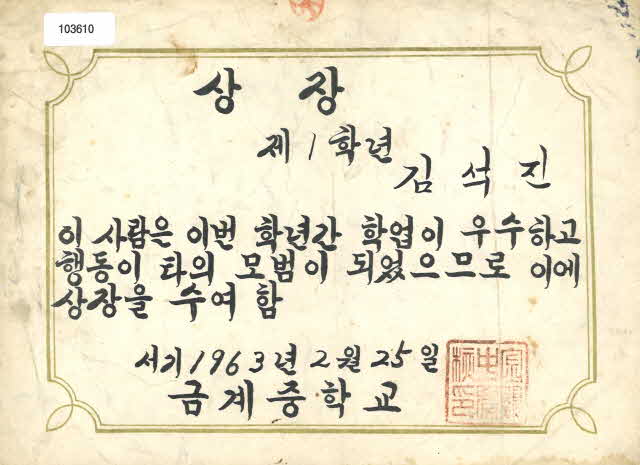 103610
상 장
제 1 학년
김 석 진
이 사람은 이번 학년간 학업이 우수하고
행동이 타의 모범이 되었으므로 이에
상장을 수여 함
서기 1963년 2월 25일
금계중학교